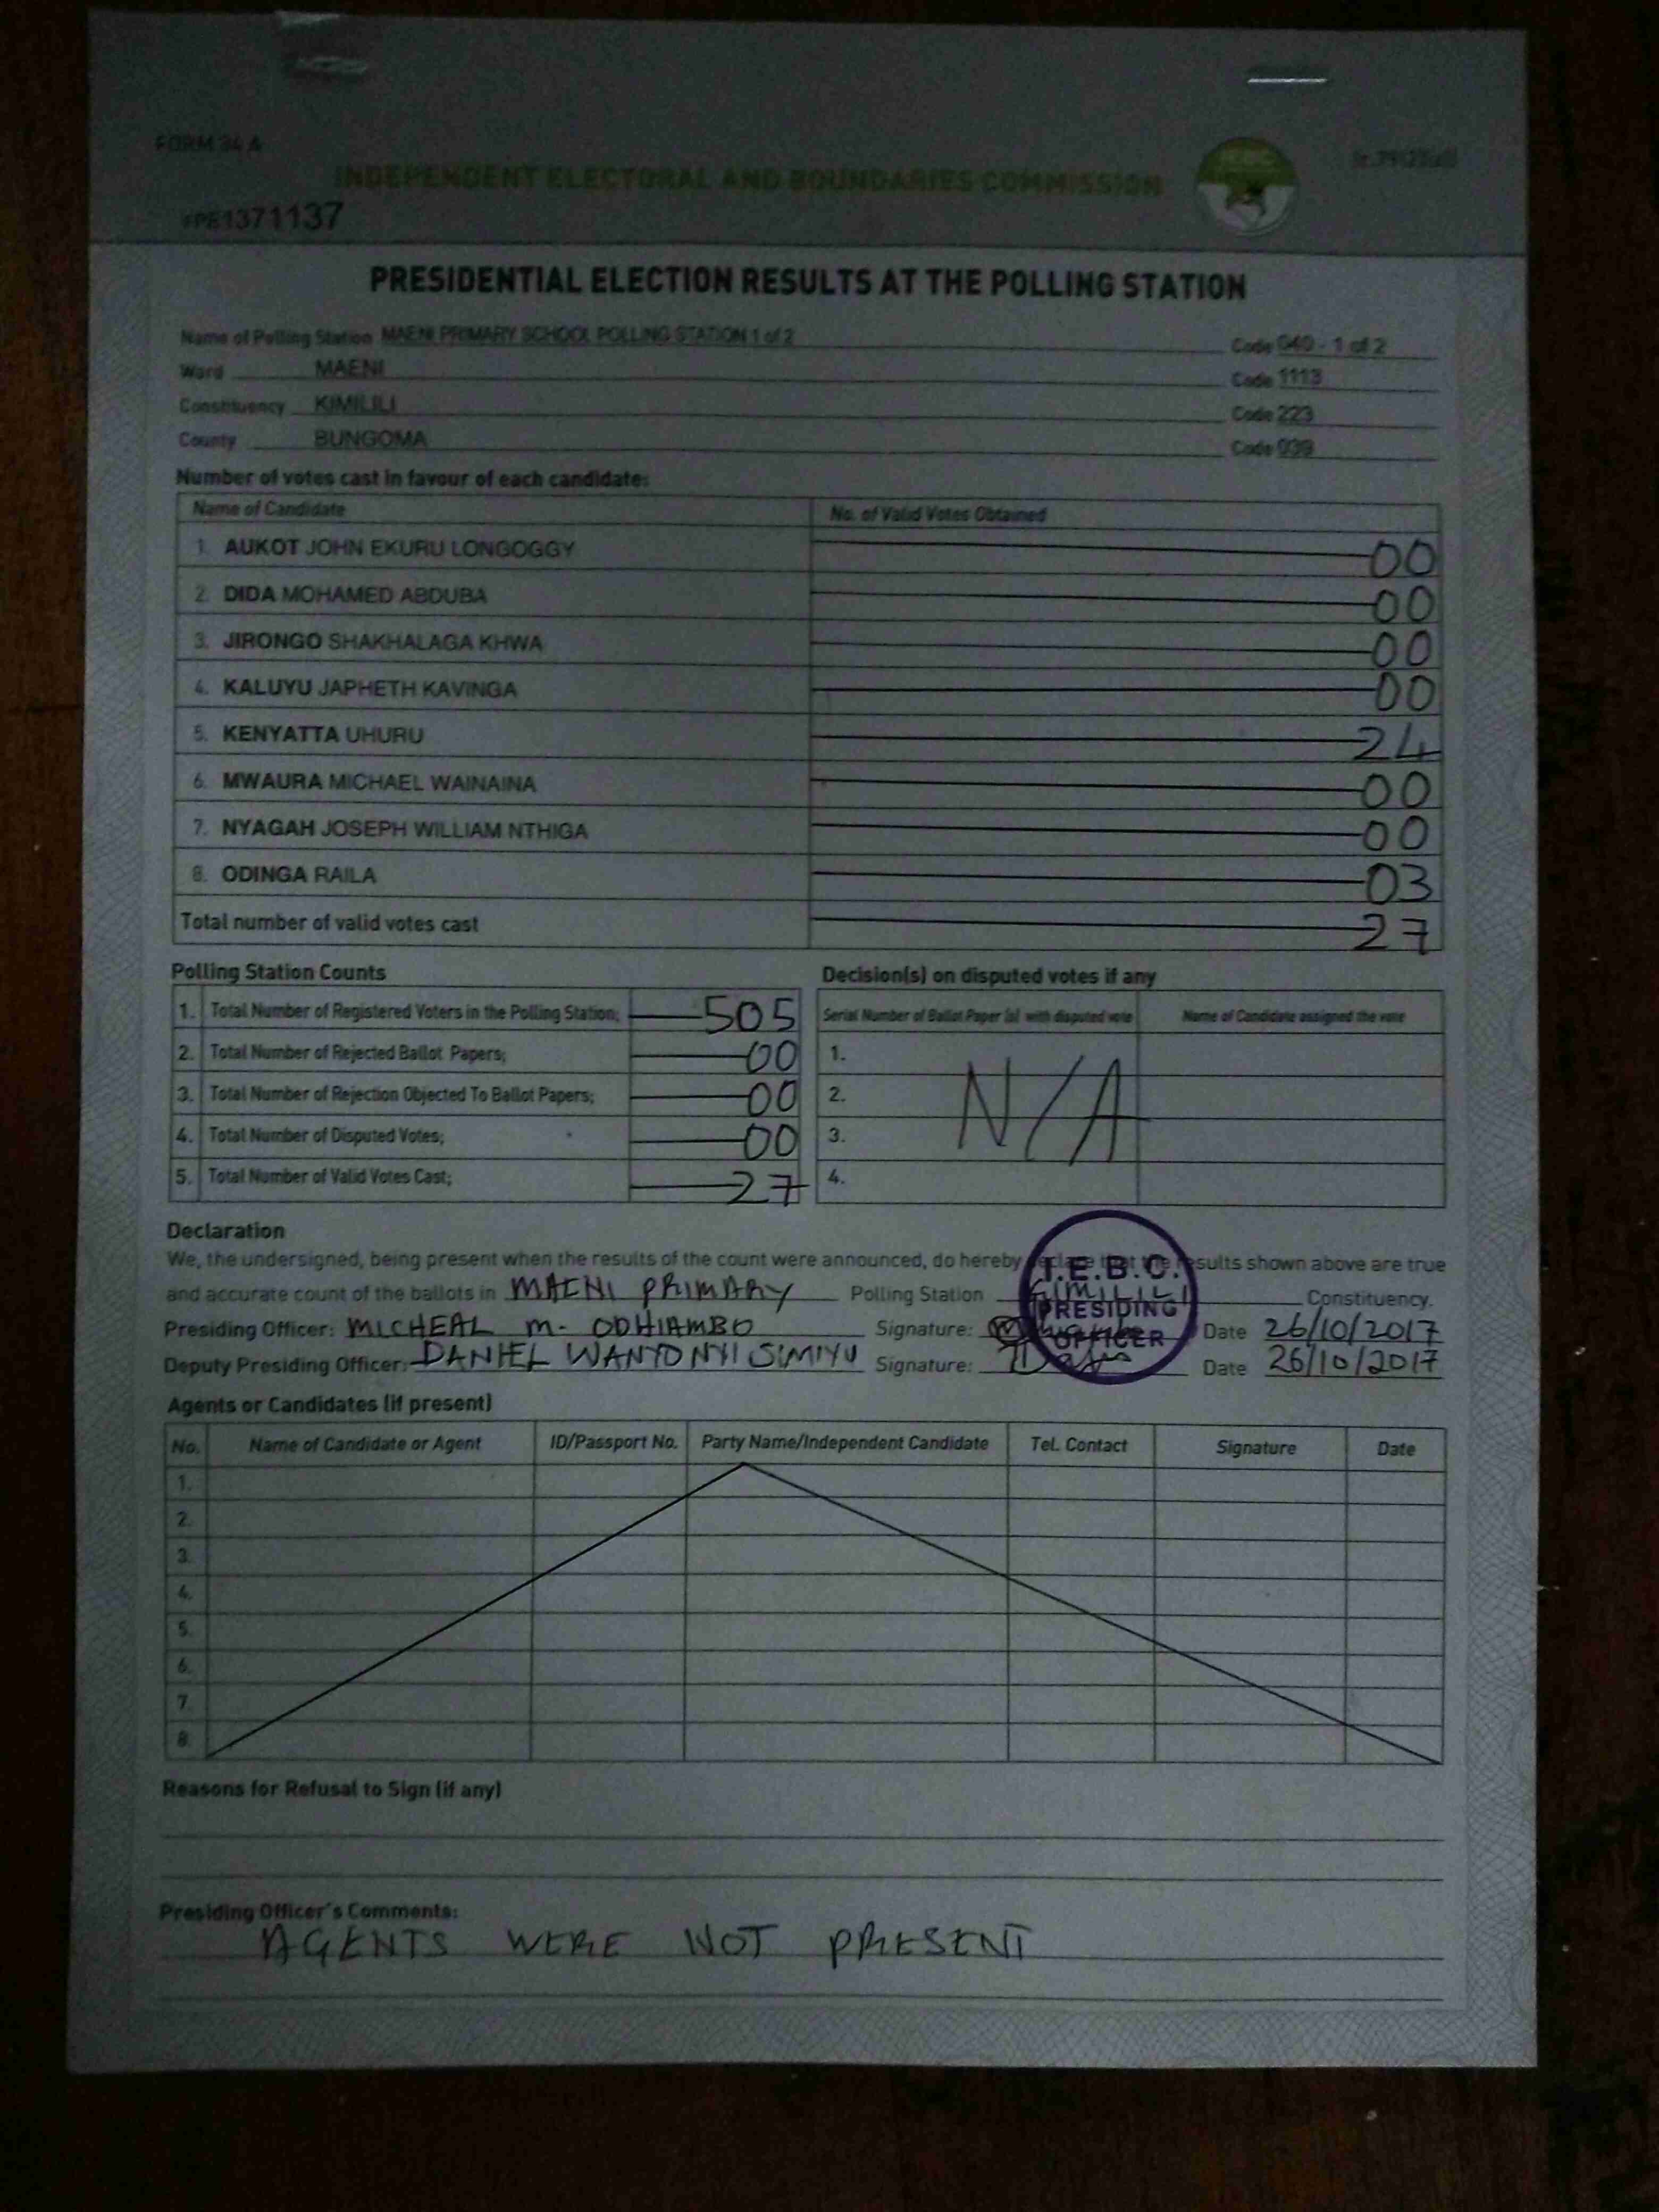 FORM 34 A
INDEPENDENT ELECTORAL AND BOUNDARIES COMMISSION
1371137
PRESIDENTIAL ELECTION RESULTS AT THE POLLING STATION
Name of Polling Station MAENI PRIMARY SCHOOL POLLING STATION 1 of 2 Code 040 - 1 of 2
Ward MAENI Code 1113
Constituency KIMILILI Code 223
County BUNGOMA Code 039
Number of votes cast in favour of each candidate:
Name of Candidate No. of Valid Votes Obtained
1. AUKOT JOHN EKURU LONGOGGY 00
2. DIDA MOHAMED ABDUBA 00
3. JIRONGO SHAKHALAGA KHWA 00
4. KALUYU JAPHETH KAVINGA 00
5. KENYATTA UHURU 24
6. MWAURA MICHAEL WAINAINA 00
7. NYAGAH JOSEPH WILLIAM NTHIGA 00
8. ODINGA RAILA 03
Total number of valid votes cast 27
Polling Station Counts
1. Total Number of Registered Voters in the Polling Station; 505
2. Total Number of Rejected Ballot Papers; 00
3. Total Number of Rejection Objected To Ballot Papers; 00
4. Total Number of Disputed Votes; 00
5. Total Number of Valid Votes Cast; 27
Decision(s) on disputed votes if any
Serial Number of Ballot Paper (s) with disputed vote Name of Candidate assigned the vote
1.
2.
3.
4.
N/A
Declaration
We, the undersigned, being present when the results of the count were announced, do hereby declare that the results shown above are true
and accurate count of the ballots in MAENI PRIMARY Polling Station KIMILILI Constituency.
Presiding Officer: MICHEAL M. ODHIAMBO Signature: Date 26/10/2017
Deputy Presiding Officer: DANIEL WANYONYI SIMIYU Signature: Date 26/10/2017
I.E.B.C.
PRESIDING
OFFICER
Agents or Candidates (if present)
No. Name of Candidate or Agent ID/Passport No. Party Name/Independent Candidate Tel. Contact Signature Date
1.
2.
3.
4.
5.
6.
7.
8.
Reasons for Refusal to Sign (if any)
Presiding Officer's Comments:
AGENTS WERE NOT PRESENT